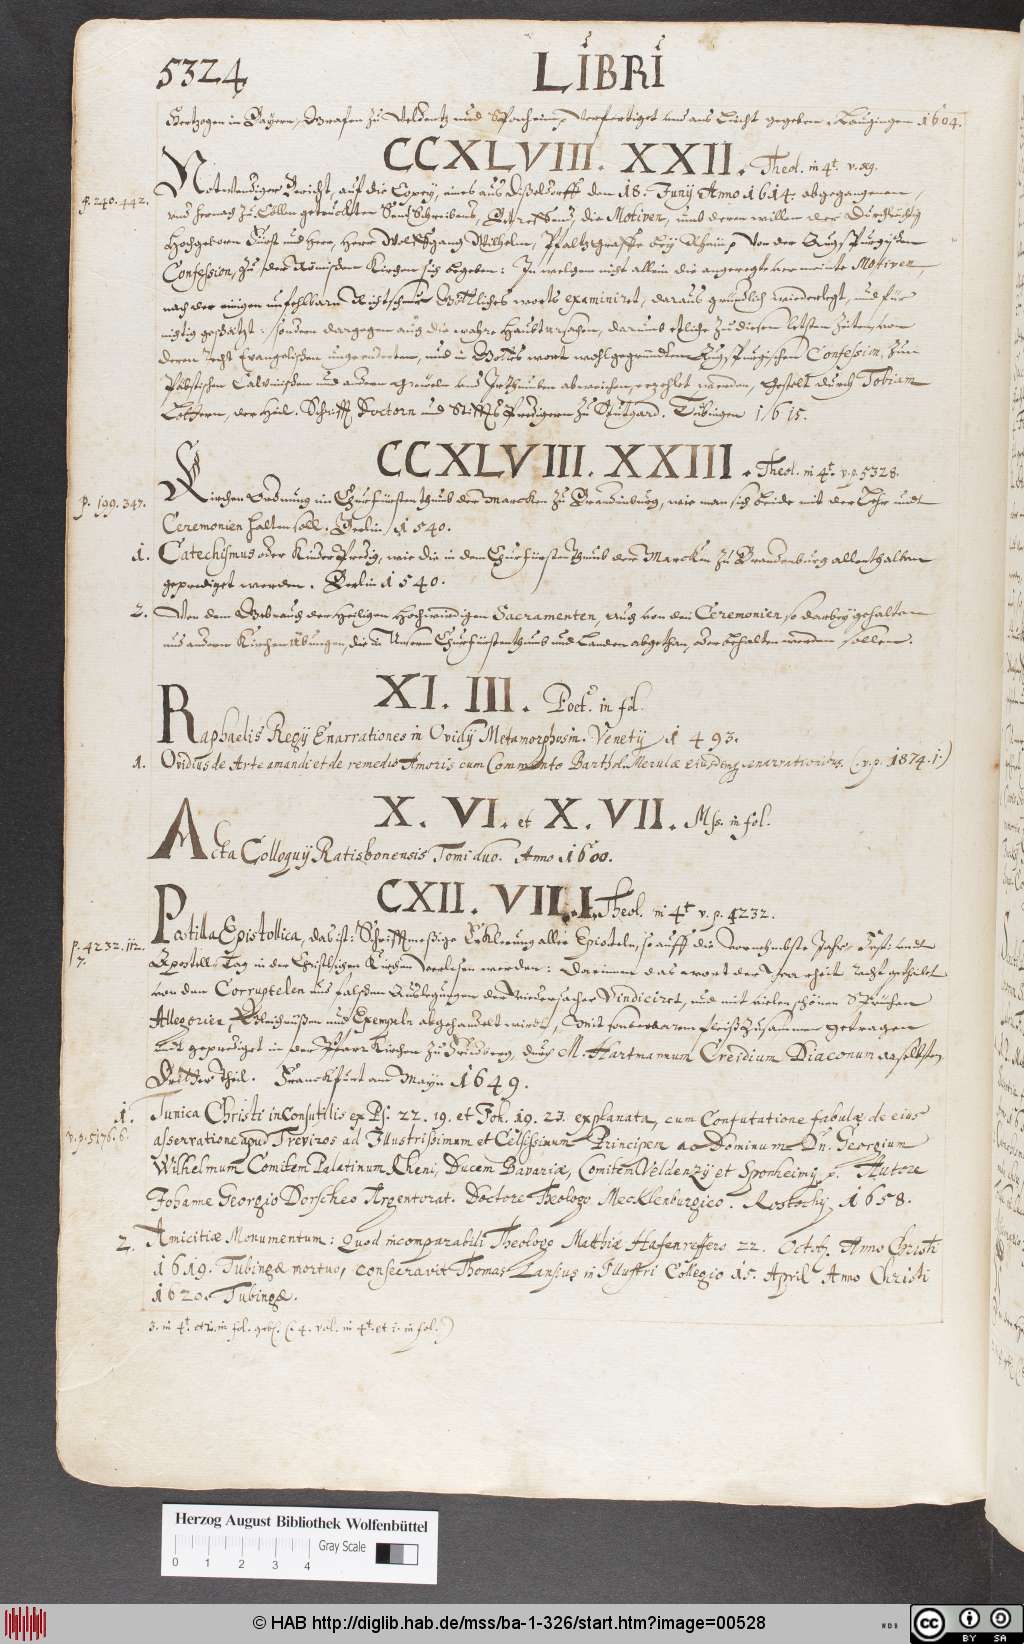 5324
LIBRI
Hertzogen in Bayern, Grafen zu Veldentz und Sponheim, Verfertiget und ans Liecht gegeben Laugingen 1604.
CCXLVIII. XXII. Theol. in 4t. v. 29.
p. 240. 442.
Notwendiger Bericht, auf die Copey, eines aus Düßeldorff den 18. Junij Anno 1614. abgegangenen,
und hernach zu Cöllen getruckten SendSchreibens, Betreffend die Motiven, umb deren willen der Durchlüchtig
Hochgeborn Fürst und Herr, Herr Wolffgang Wilhelm, Pfaltzgraffe bey Rhein, Von der Augspurgischen
Confession, zu der Römischen Kirchen sich begeben: In welchem nicht allein die angeregte vermeinte Motiven,
nach der einigen unfehlbarn Richtschnur Göttliches worts examiniret, daraus gründlich wiederlegt, und für
nichtig geschätzt: sondern dargegen auch die wahre Hauptursachen, darumb etliche zu diesen letsten zeiten, von
deren recht Evangelischen ungeenderten, und in Gottes wort wohlgegründten Augspurgischen Confession, zun
Päbstischen Calvinischen und andern Greueln und Irrthumben abweichen, erzehlet werden, Gestelt durch Tobiam
Lothern, der Heil. Schrifft Doctorn und Stiffts Predigern zu Stutgard. Tübingen 1615.
CCXLVIII. XXIII. Theol. in 4t. v. p. 5328.
p. 199. 347.
Kirchen Ordnung im Churfürstenthumb der Marcken zu Brandenburg, wie man sich beide mit der Lehr und
Ceremonien halten soll. Berlin 1540.
1. Catechismus oder Kinder Predig, wie die in dem Churfürstenthumb der Marcken zu Brandenburg allenthalben
geprediget werden. Berlin 1540.
2. Von dem Gebrauch der Heiligen Hochwirdigen Sacramenten, auch von den Ceremonien so darbey gehalten
und andern Kirchen übungen, die in Unserm Churfürstenthumb und Landen abgethan, oder behalten werden sollen.
XI. III. Poet. in fol.
Raphaelis Regij Enarrationes in Ovidij Metamorphosin. Venetij 1493.
1. Ovidius de Arte amandi et de remedio Amoris cum Commento Barthol. Merulæ ejusdemq. enarrationibus. (v. p. 1874. 1.)
X. VI. et X. VII. Mss. in fol.
Acta Colloquij Ratisbonensis Tomi duo. Anno 1600.
CXII. VII.1. Theol. in 4t v. p. 4232.
p. 4232. 112.
7.
Postilla Epistolica, das ist: Schrifftmeßige Erklerung aller Episteln, so auff die vornehmbste Jahrs Fest und
Apostell Tag in der Christlichen Kirchen verlesen werden: Darinnen das wort der Warheit recht getheilet
von den Corruptelen und falschen Auslegungen der Widersacher Vindiciret, und mit vielen schönen Sprüchen
Allegorien, Gleichnüßen und Exempeln abgehandelt wird, Mit sonderbarem fleiß zusammen getragen
und geprediget in der Pfarr Kirchen zu Fridberg, durch M. Hartmannum Creidium Diaconum daselbsten
Dritter theil. Franckfurt am Mayn 1649.
v. p. 5176. 6.
1. Tunica Christi inconsutilis ex Ps. 22. 19. et Joh. 19. 23. explanata, cum Confutatione fabulæ de eius
asservatione apud Treviros ad Illustrissimum et Celsissimum Principem ac Dominum Dn. Georgium
Wilhelmum Comitem Palatinum Rheni, Ducem Bavariæ, Comitem Veldenzij et Sponheimij p. Autore
Johanne Georgio Dorscheo Argentorat. Doctore Theologo Mecklenburgico. Rostochij, 1658.
2. Amicitiæ Monumentum: Quod incomparabili Theologo Matthiæ Hafenreffero 22. Octob. Anno Christi
1619. Tubingæ mortuo, consecravit Thomas Lansius in Illustri Collegio 15. April Anno Christi
1620. Tubingæ.
3. in 4t. et 2. in fol. gebl. (: 4. vol. in 4t. et 1. in fol. :)
Herzog August Bibliothek Wolfenbüttel
Gray Scale
0 1 2 3 4
© HAB http://diglib.hab.de/mss/ba-1-326/start.htm?image=00528
WDB
CC BY SA